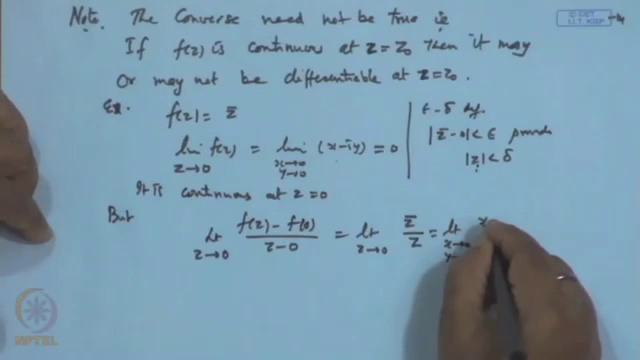 Note. The Converse need not be true ie
If f(z) is continuous at z=z₀ then it may
or may not be differentiable at z=z₀.
Ex. f(z) = z̄
lim z→0 f(z) = lim x→0 y→0 (x-iy) = 0
ε-δ def.
|z̄-0|<ε provided
|z|<δ
It is continuous at z=0
But
lt z→0 f(z)-f(0) / z-0 = lt z→0 z̄ / z = lt x→0 y→ x
© CET
I.I.T. KGP
NPTEL